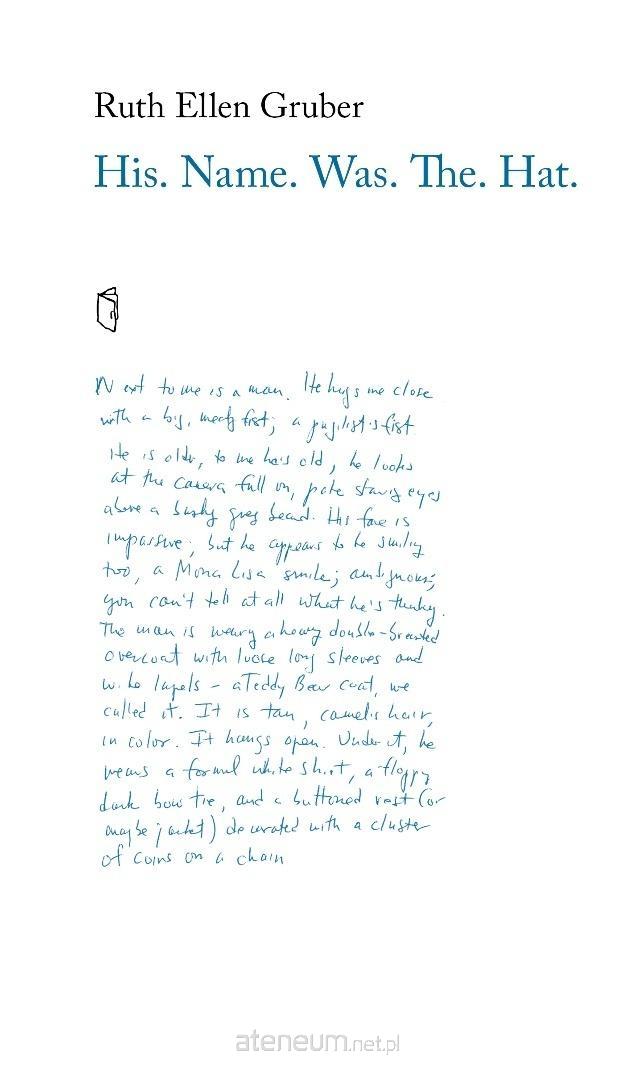 Ruth Ellen Gruber
His. Name. Was. The. Hat.
Next to me is a man. He hugs me close
with a big, meaty fist; a pugilist's fist
He is older, to me he's old, he looks
at the camera full on, pale staring eyes
above a bushy grey beard. His face is
impassive, but he appears to be smiling
too, a Mona Lisa smile; ambiguous;
you can't tell at all what he's thinking.
The man is wearing a heavy double-breasted
overcoat with loose long sleeves and
wide lapels – a Teddy Bear coat, we
called it. It is tan, camel's hair,
in color. It hangs open. Under it, he
wears a formal white shirt, a floppy
dark bow tie, and a buttoned vest (or
maybe jacket) decorated with a cluster
of coins on a chain
ateneum.net.pl